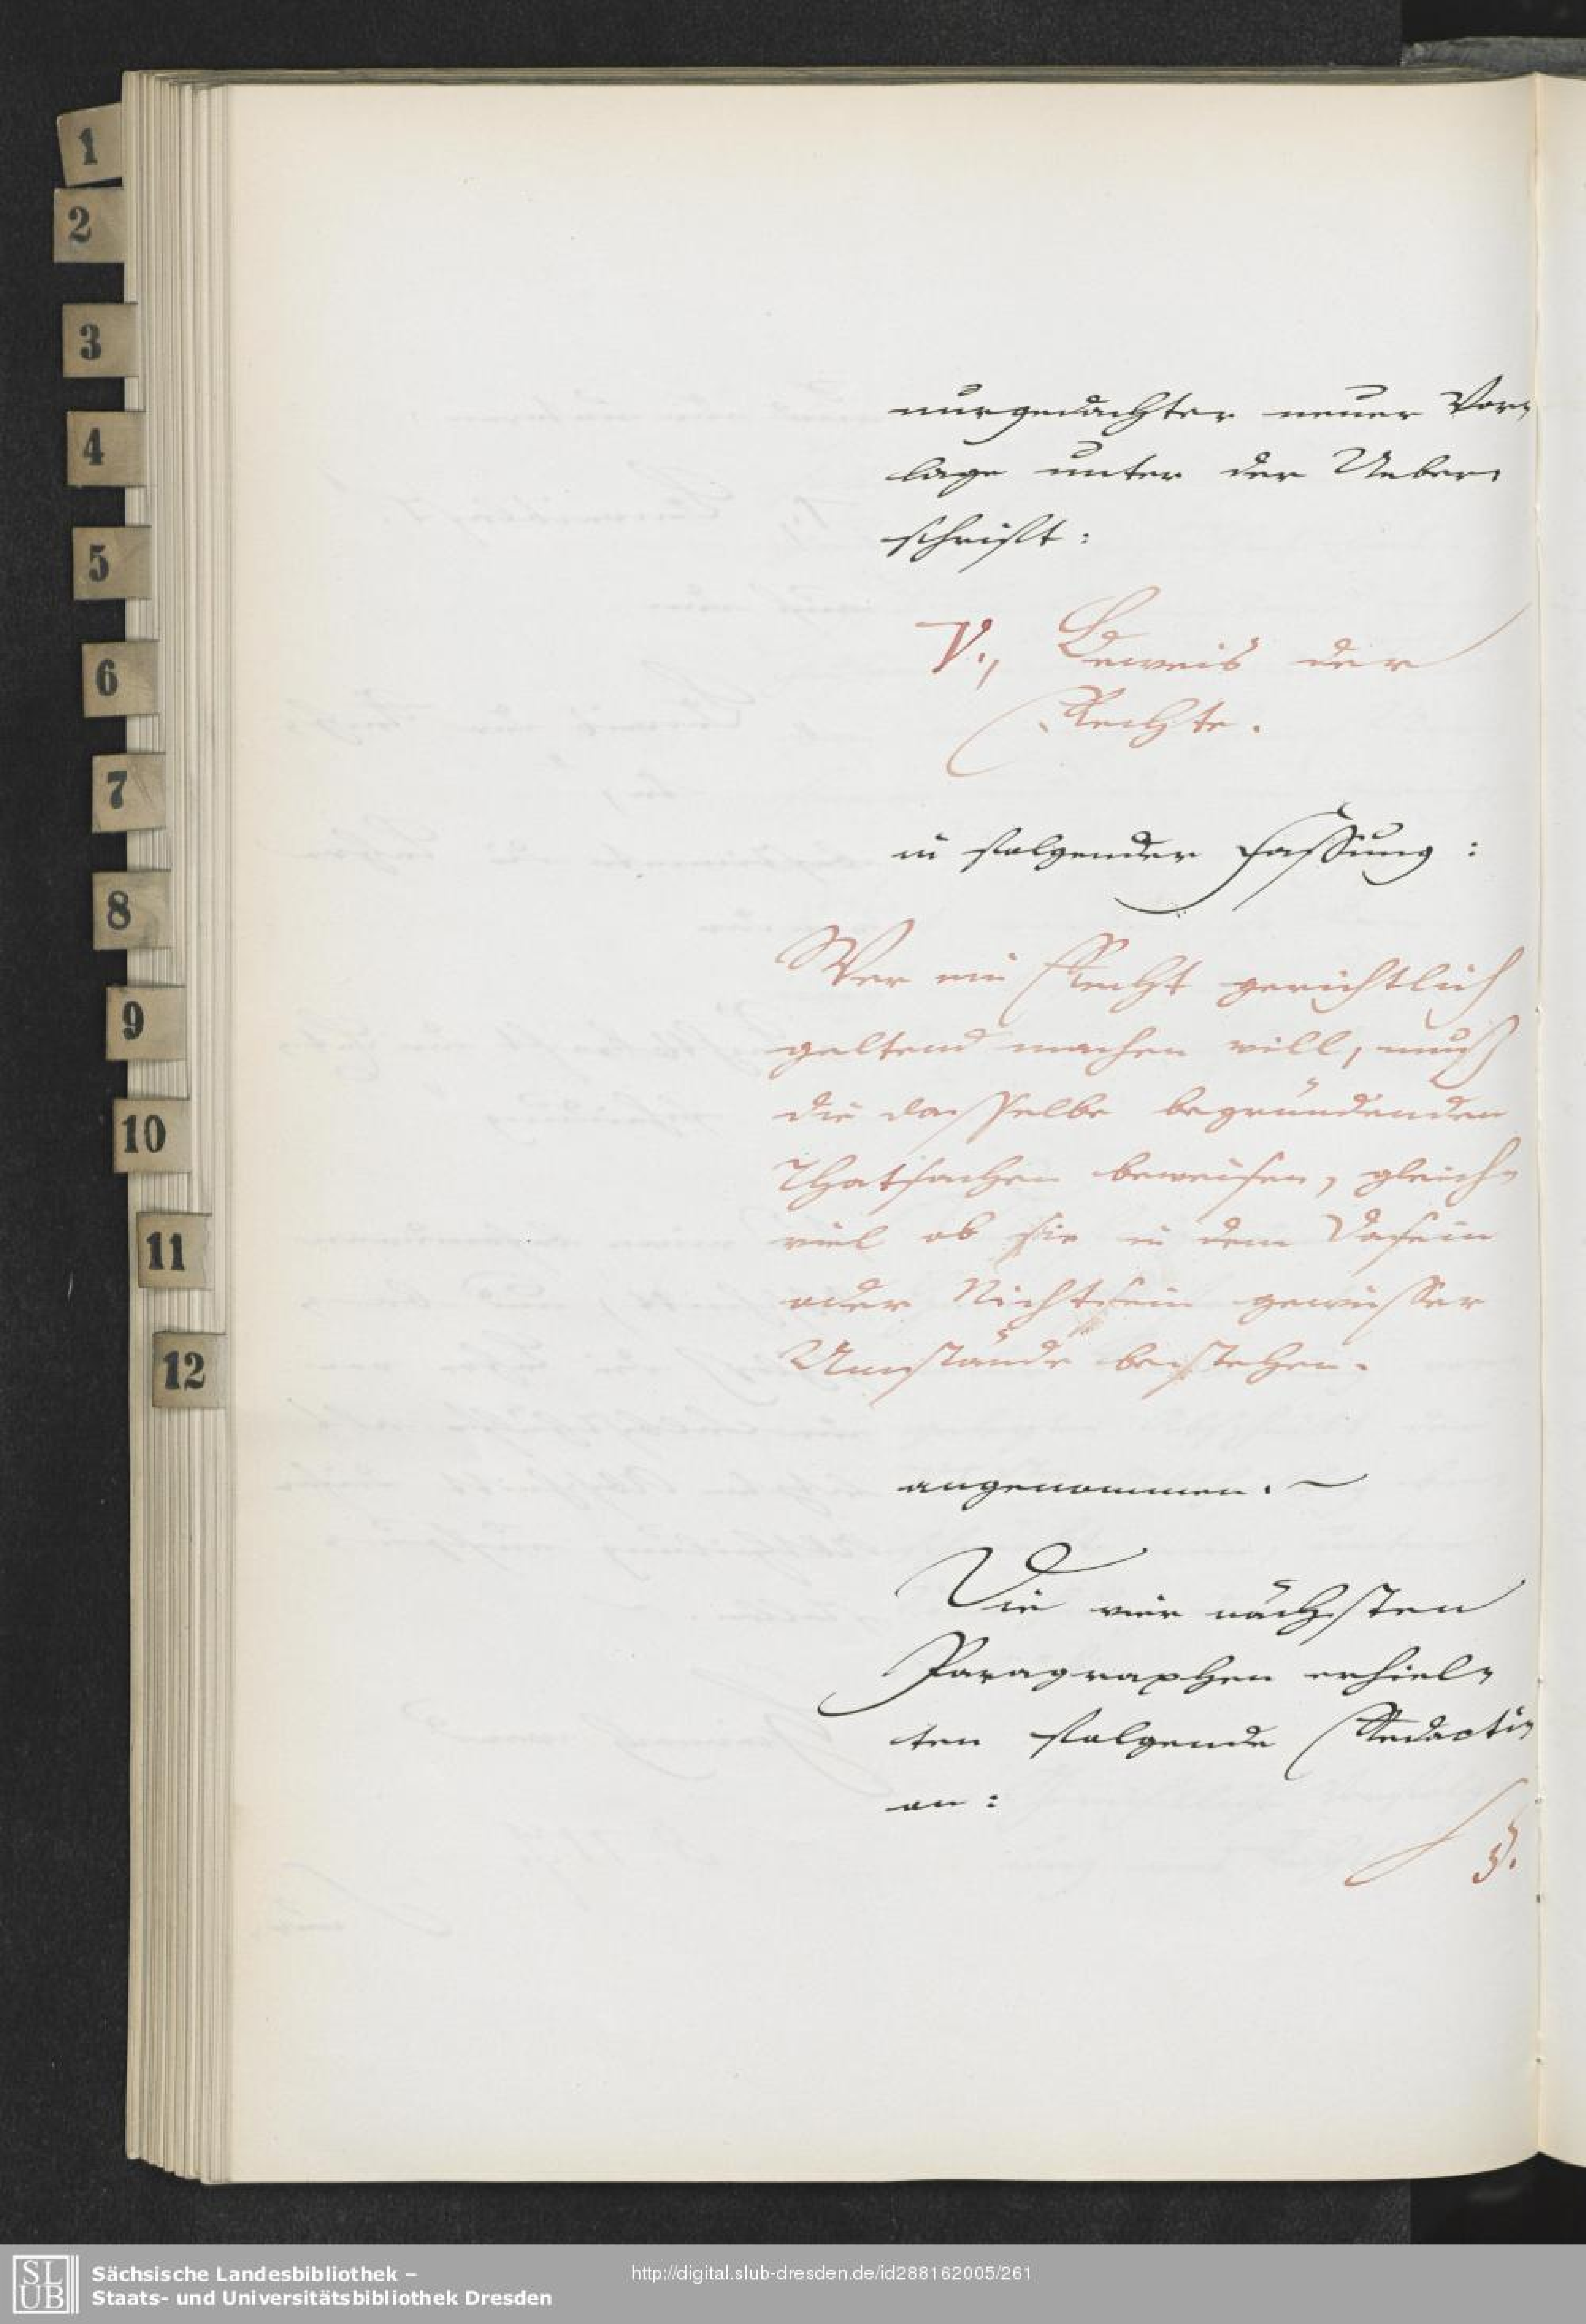 1
2
3
4
5
6
7
8
9
10
11
12
nurgedachter neuer Vor-
lage unter der Ueber-
schrift:
V., Beweis der
Rechte.
in folgender Fassung:
Wer ein Recht gerichtlich
geltend machen will, muß
die dasselbe begründenden
Thatsachen beweisen, gleich-
viel ob sie in dem Dasein
oder Nichtsein gewisser
Umstände bestehen.
angenommen. –
Die vier nächsten
Paragraphen erhiel-
ten folgende Redacti-
on:
§.
SLUB
Sächsische Landesbibliothek –
Staats- und Universitätsbibliothek Dresden
http://digital.slub-dresden.de/id288162005/261